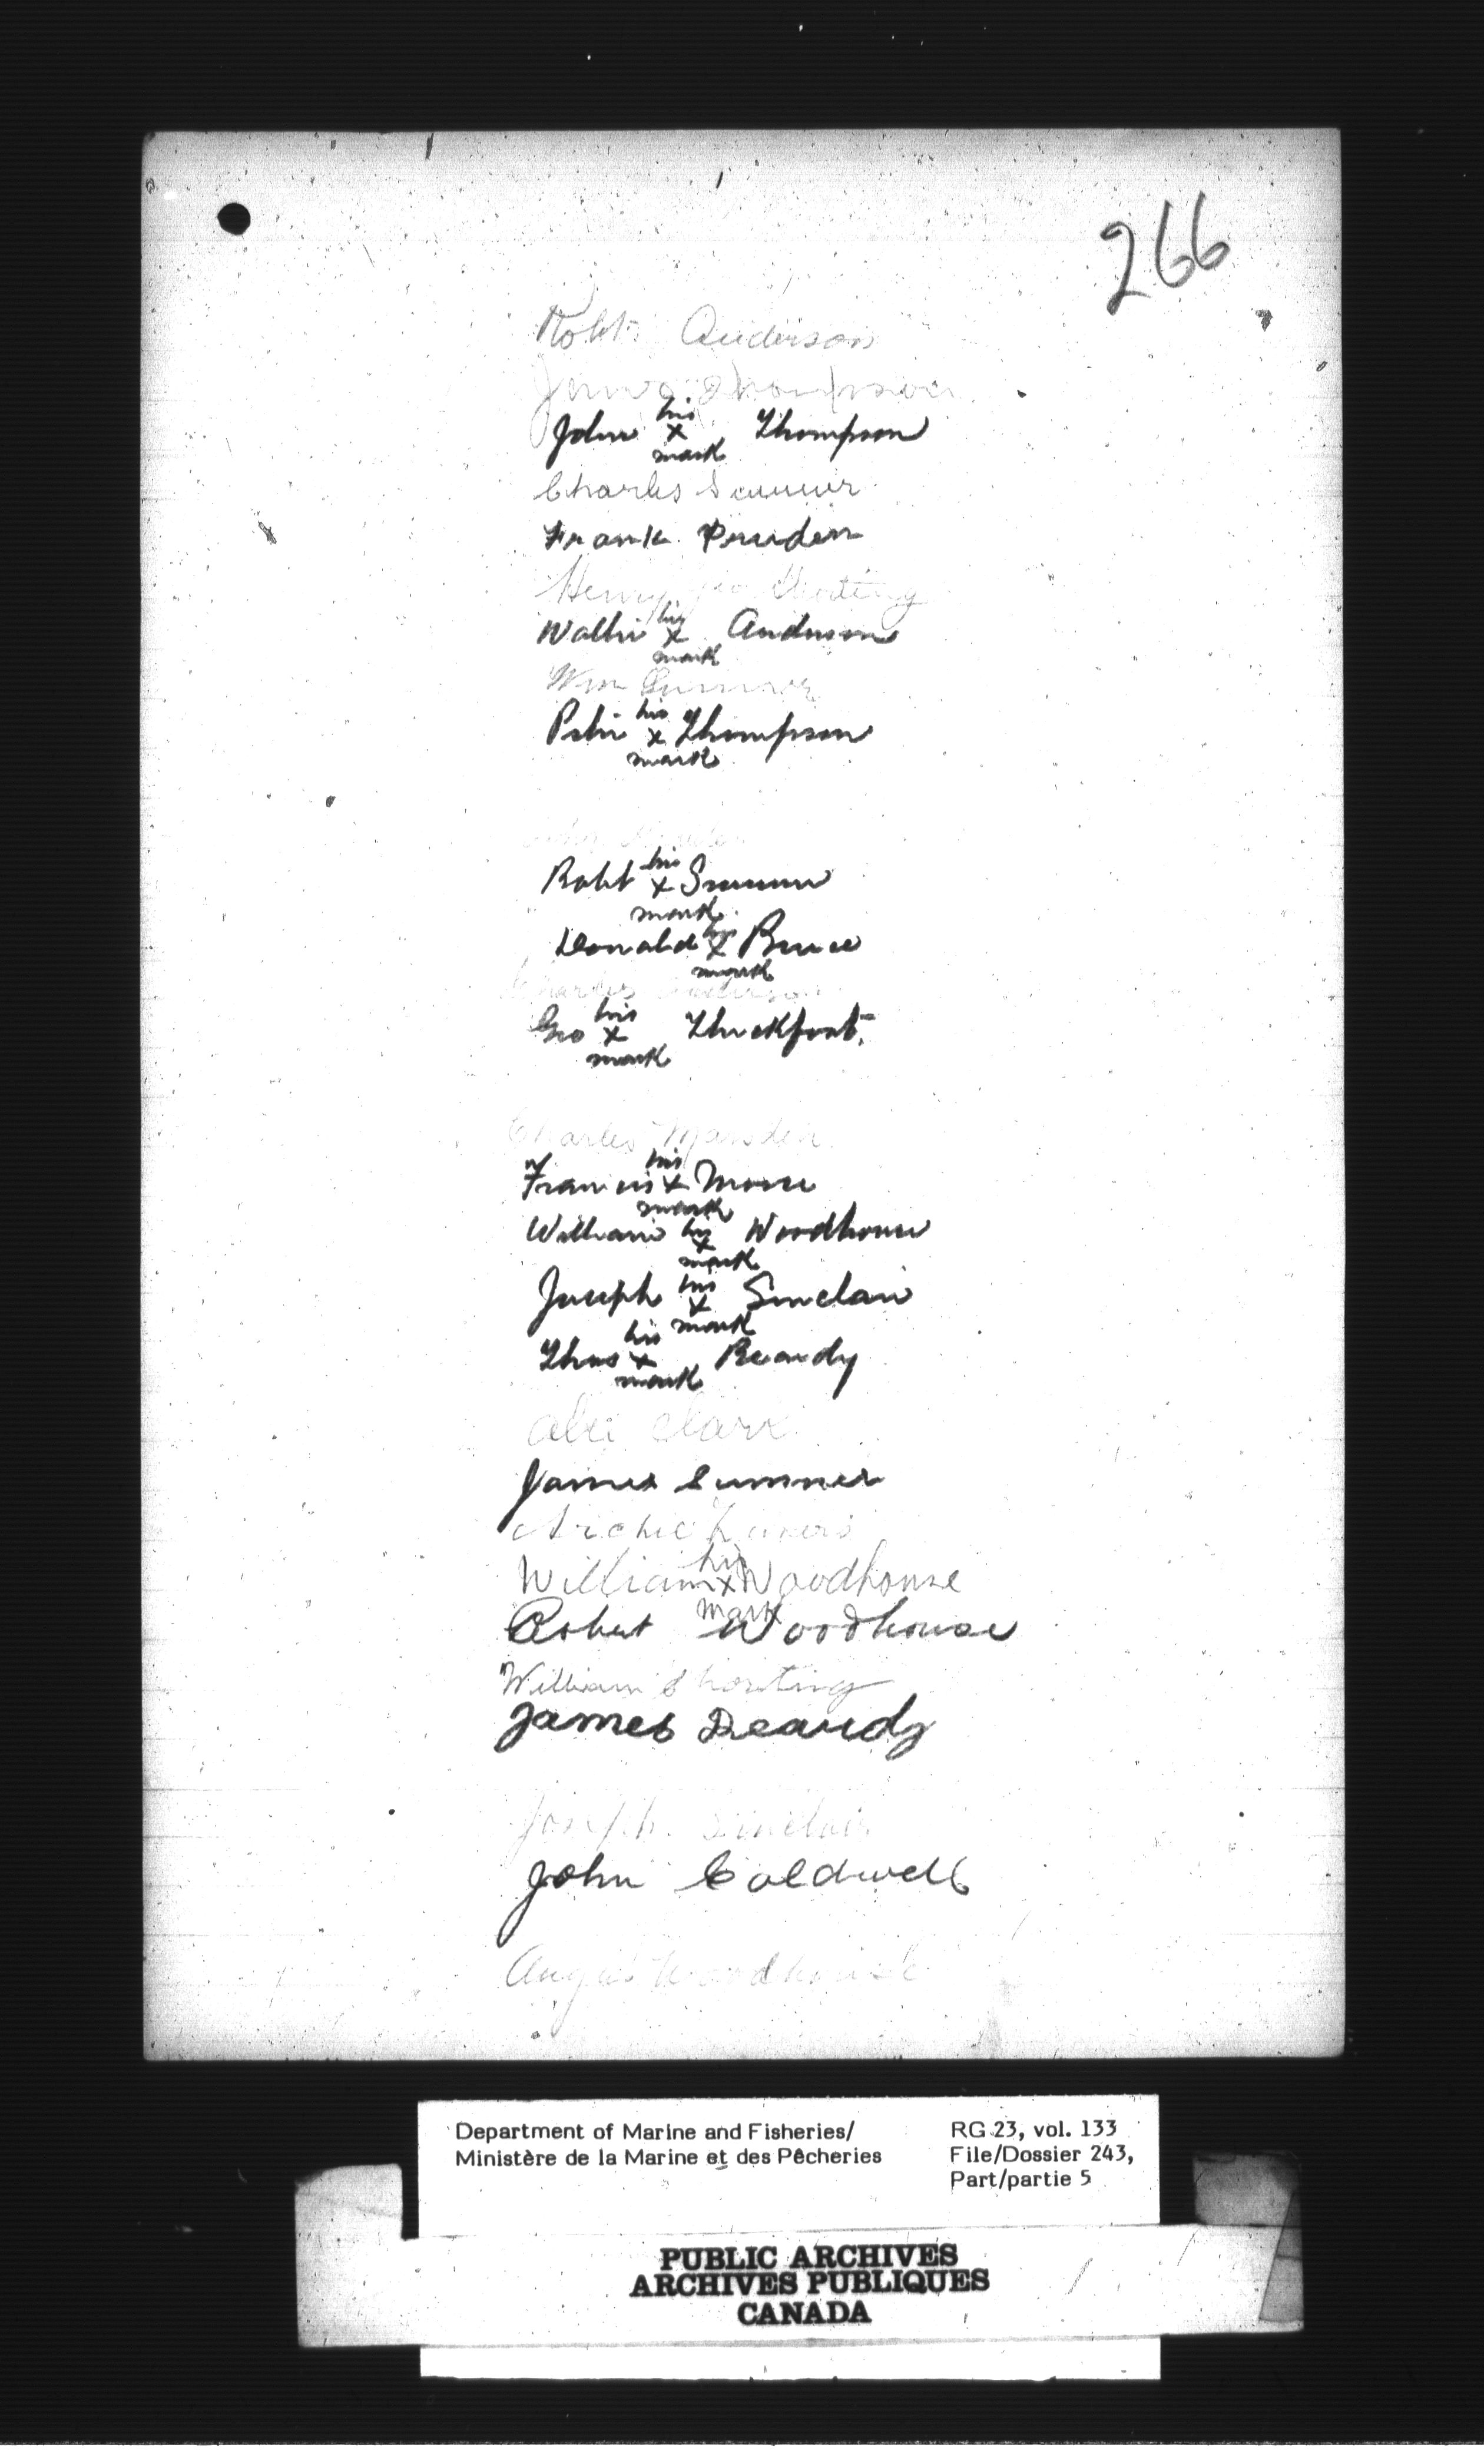 266
Robt. Anderson
James Thompson
his
John x Thompson
mark
Charles Sumner
Frank Pruden
Henry Shorting
his
Walter x Anderson
mark
Wm Sumner
his
Peter x Thompson
mark
John
his
Robt x Sumner
mark
his
Donald x Bruce
mark
Charles Anderson
his
Geo x Thickfoot.
mark
Charles Marsden
his
Francis x Moose
mark
his
William x Woodhouse
mark
his
Joseph x Sinclair
mark
his
Thos x Beardy
mark
Alex Clark
James Sumner
Archie
his
William x Woodhouse
mark
Robert Woodhouse
William Shorting
James Beardy
Joseph. Sinclair
John Coldwell
Angus Woodhouse
Department of Marine and Fisheries/
Ministère de la Marine et des Pêcheries
RG 23, vol. 133
File/Dossier 243,
Part/partie 5
PUBLIC ARCHIVES
ARCHIVES PUBLIQUES
CANADA